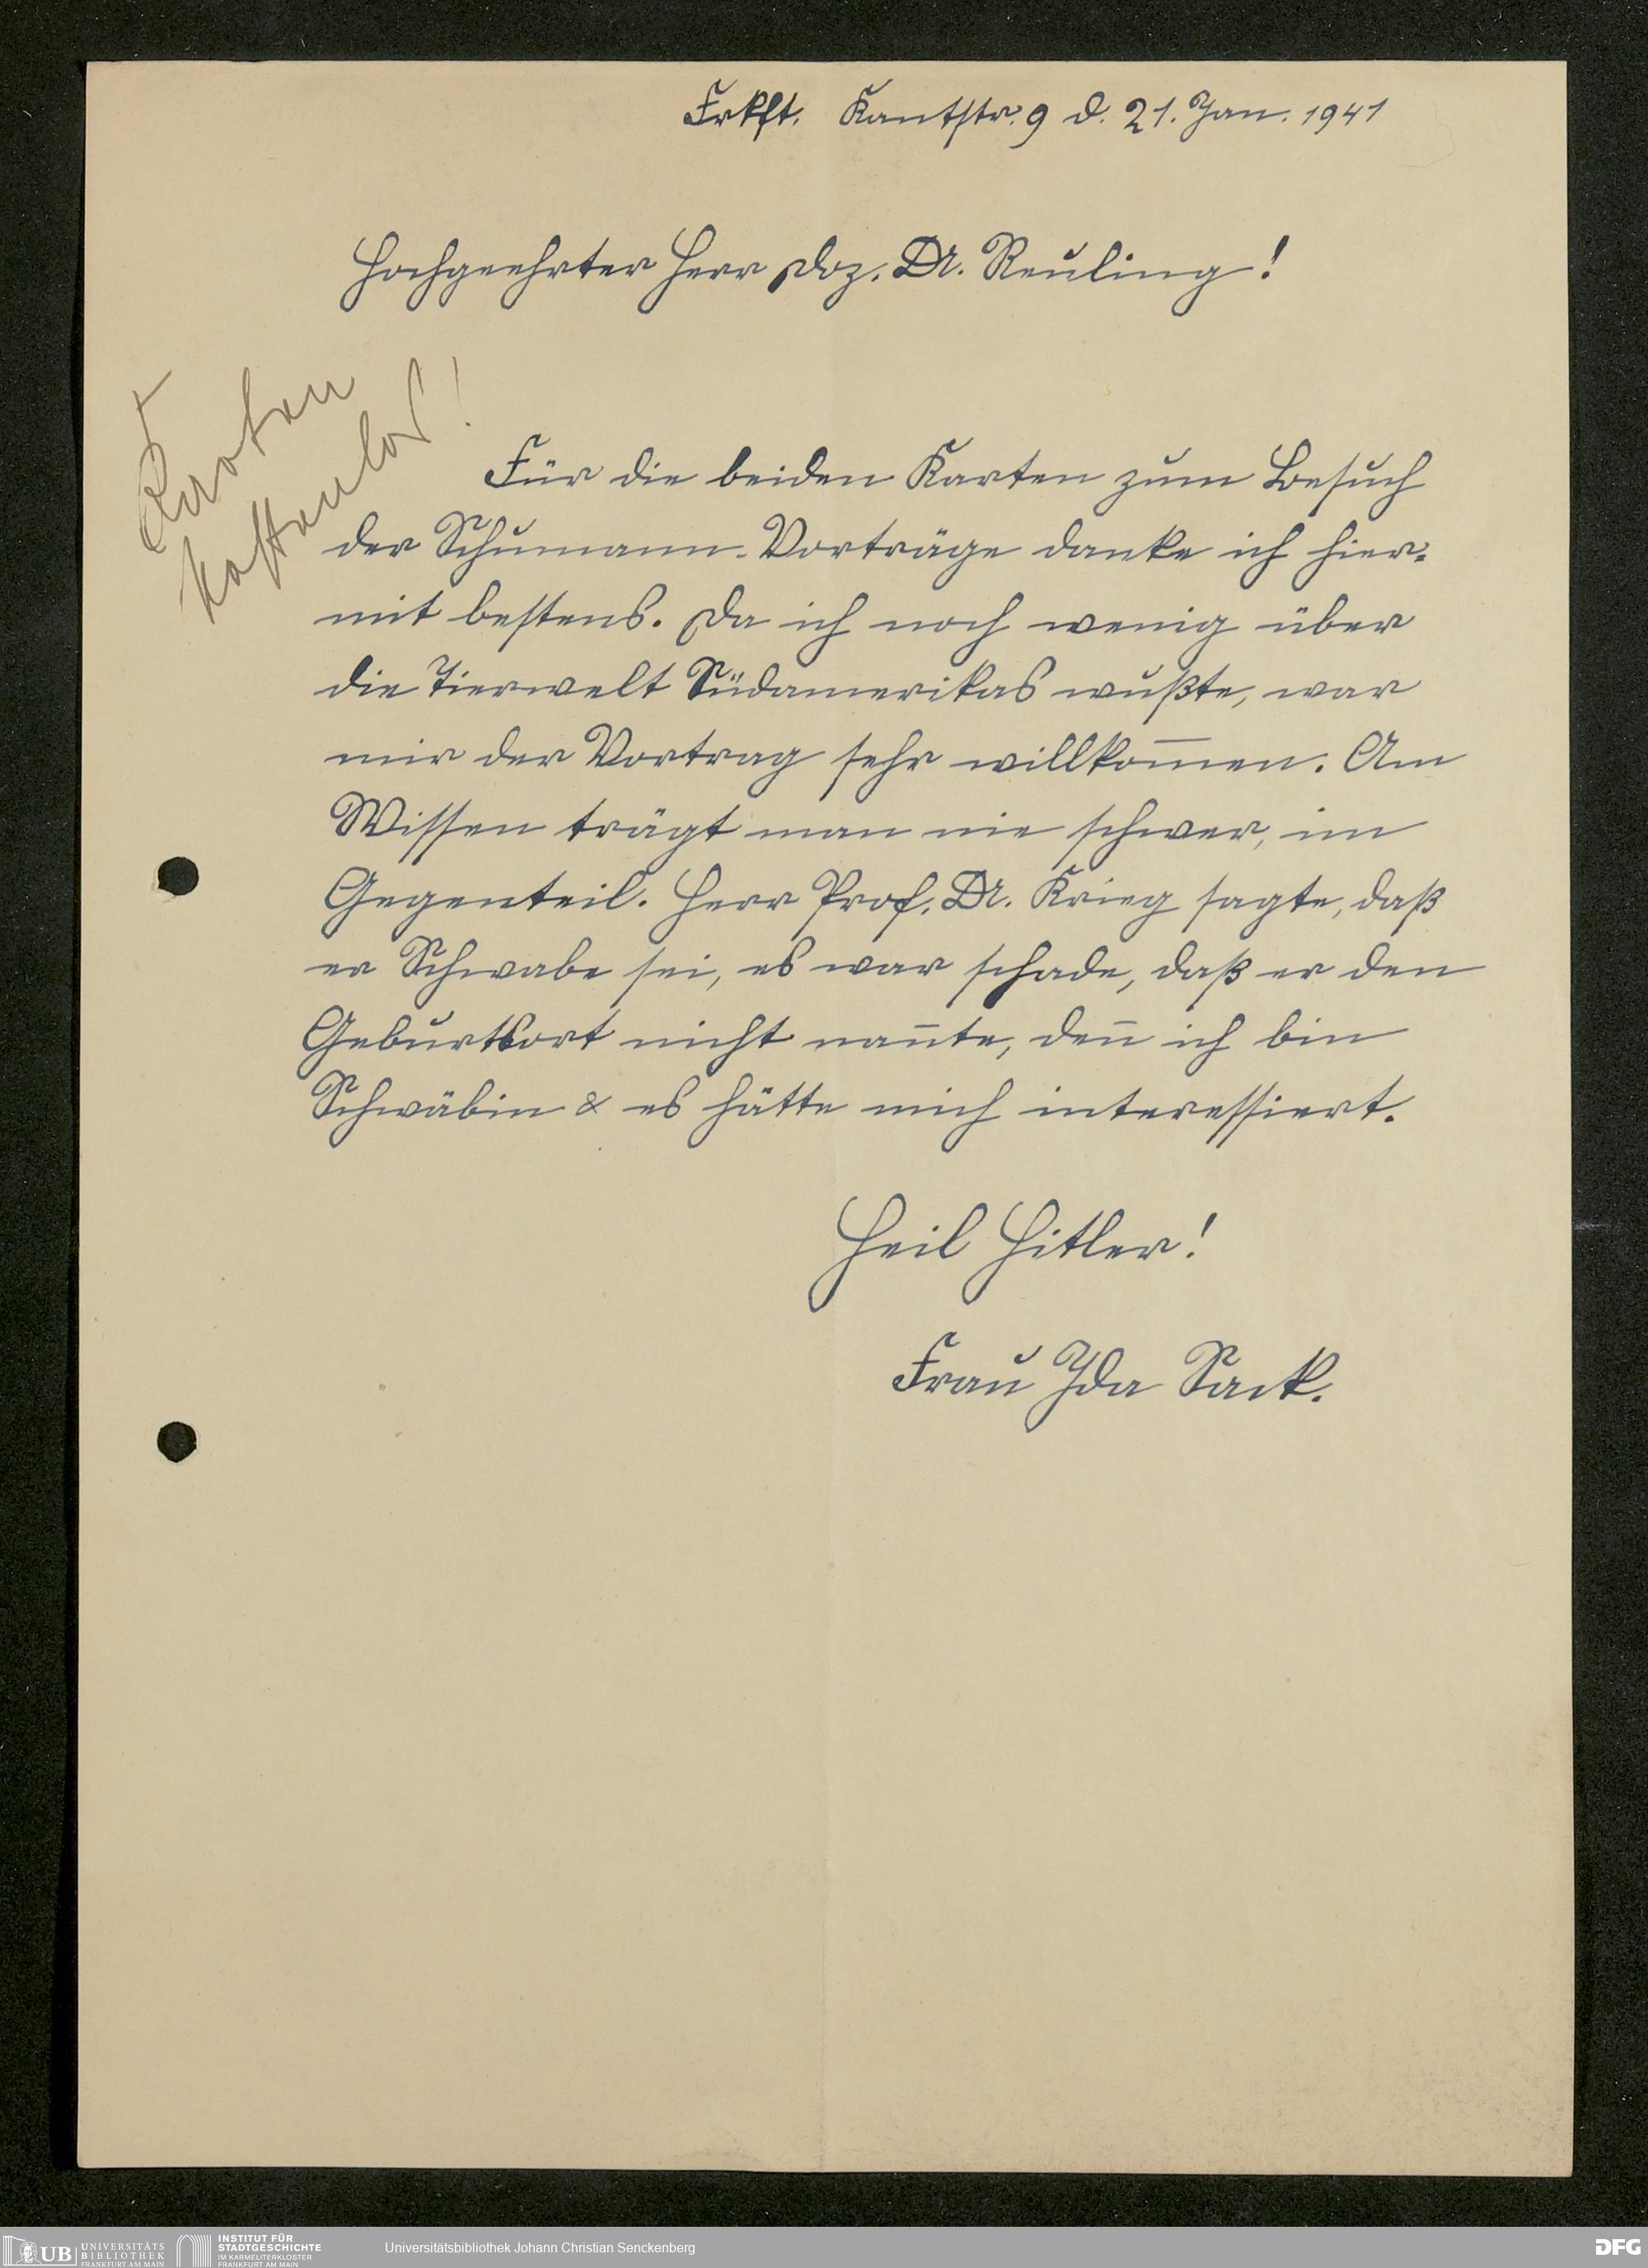 Frkft. Kantstr. 9 d. 21. Jan. 1941
Hochgeehrter Herr Doz. Dr. Reuling!
5 Karten
kostenlos!
Für die beiden Karten zum Besuch
der Schumann-Vorträge danke ich hier-
mit bestens. Da ich noch wenig über
die Tierwelt Südamerikas wußte, war
mir der Vortrag sehr willkom̄en. Am
Wissen trägt man nie schwer, im
Gegenteil. Herr Prof. Dr. Krieg sagte, daß
er Schwabe sei, es war schade, daß er den
Geburtsort nicht nan̄te, den̄ ich bin
Schwäbin & es hätte mich interessiert.
Heil Hitler!
Frau Ida Sack.
UB UNIVERSITÄTS
BIBLIOTHEK
FRANKFURT AM MAIN
INSTITUT FÜR
STADTGESCHICHTE
IM KARMELITERKLOSTER
FRANKFURT AM MAIN
Universitätsbibliothek Johann Christian Senckenberg
DFG